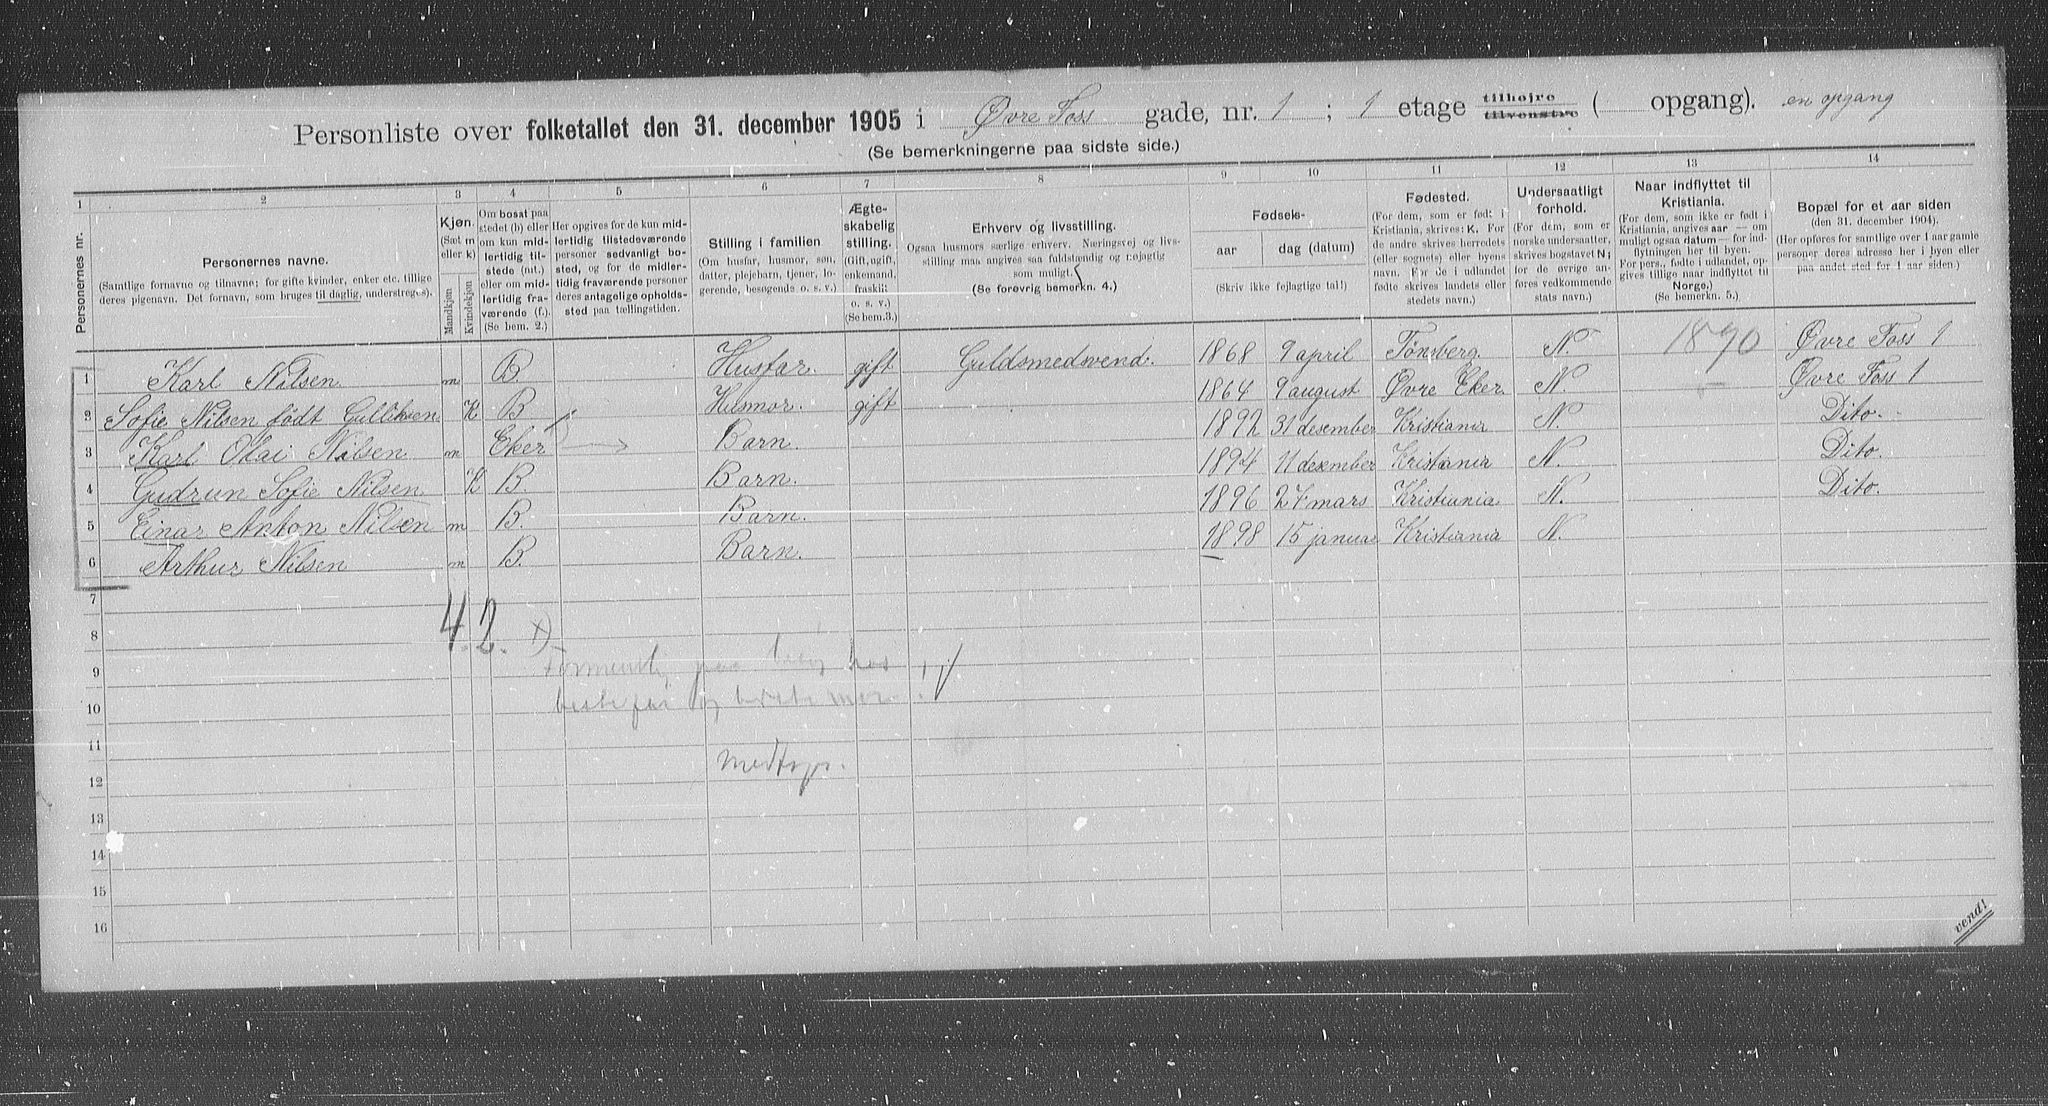 Personliste over folketallet den 31. december 1905 i Øvre Foss gade, nr. 1 ; 1 etage tilhøjre tilvenstre ( opgang). en opgang
(Se bemerkningerne paa sidste side.)
1 2 3 4 5 6 7 8 9 10 11 12 13 14
Personernes nr.
Personernes navne.
(Samtlige fornavne og tilnavne; for gifte kvinder, enker etc. tillige
deres pigenavn. Det fornavn, som bruges til daglig, understreges).
Kjøn.
(Sæt m
eller k)
Mandkjøn
Kvindekjøn
Om bosat paa
stedet (b) eller
om kun mid-
lertidig til-
stede (mt.)
eller om mid-
lertidig fra-
værende (f.).
(Se bem. 2.)
Her opgives for de kun mid-
lertidig tilstedeværende
personer sedvanlig bo-
sted, og for de midler-
tidig fraværende personer
deres antagelige opholds-
sted paa tællingstiden.
Stilling i familien
(Om husfar, husmor, søn,
datter, plejebarn, tjener, lo-
gerende, besøgende o. s. v.)
Ægte-
skabelig
stilling.
(Gift, ugift,
enkemand,
fraskilt
o. s. v.)
(Se bem.3.)
Erhverv og livsstilling.
Ogsaa husmors særlige erhverv. Næringsvej og livs-
stilling maa angives saa fuldstændig og nøjagtig
som muligt.
(Se forøvrig bemerkn. 4.)
Fødsels-
aar dag (datum)
(Skriv ikke fejlagtige tal!)
Fødested.
(For dem, som er født i
Kristiania, skrives: K. For
de andre skrives herredets
(eller sognets) eller byens
navn. For de i udlandet
fødte skrives landets eller
stedets navn.)
Undersaatligt
forhold.
(For dem, som er
norske undersaatter,
skrives bogstavet N;
for de øvrige an-
føres vedkommende
stats navn.)
Naar indflyttet til
Kristiania.
(For dem, som ikke er født i
Kristiania, angives aar — om
muligt ogsaa datum — for ind-
flytningen her til byen.
For pers., fødte i udlandet, op-
gives tillige naar indflyttet til
Norge.)
(Se bemerkn. 5.)
Bopæl for et aar siden
(den 31. december 1904).
(Her opføres for samtlige over 1 aar gamle
personer deres adresse her i byen eller
paa andet sted for 1 aar siden.)
1 Karl Nilsen m B. Husfar. gift Guldsmedsvend. 1868 9 april Tønsberg. N. 1890 Øvre Foss 1
2 Sofie Nilsen født Gulliksen K B Husmor. gift 1864 9 august Øvre Eker N Øvre Foss 1
3 Karl Olai Nilsen m Eker Barn. 1892 31 desember Kristiania N. Dito.
4 Gudrun Sofie Nilsen K B Barn. 1894 11 desember Kristiania N. Dito.
5 Einar Anton Nilsen m B. Barn. 1896 27 mars Kristiania N. Dito.
6 Arthur Nilsen m B. Barn. 1898 15 januar Kristiania N.
7
8 4. 2. x)
9 paa besøg hos
10 bestefar og bestemor.
11
12
13
14
15
16
vend!